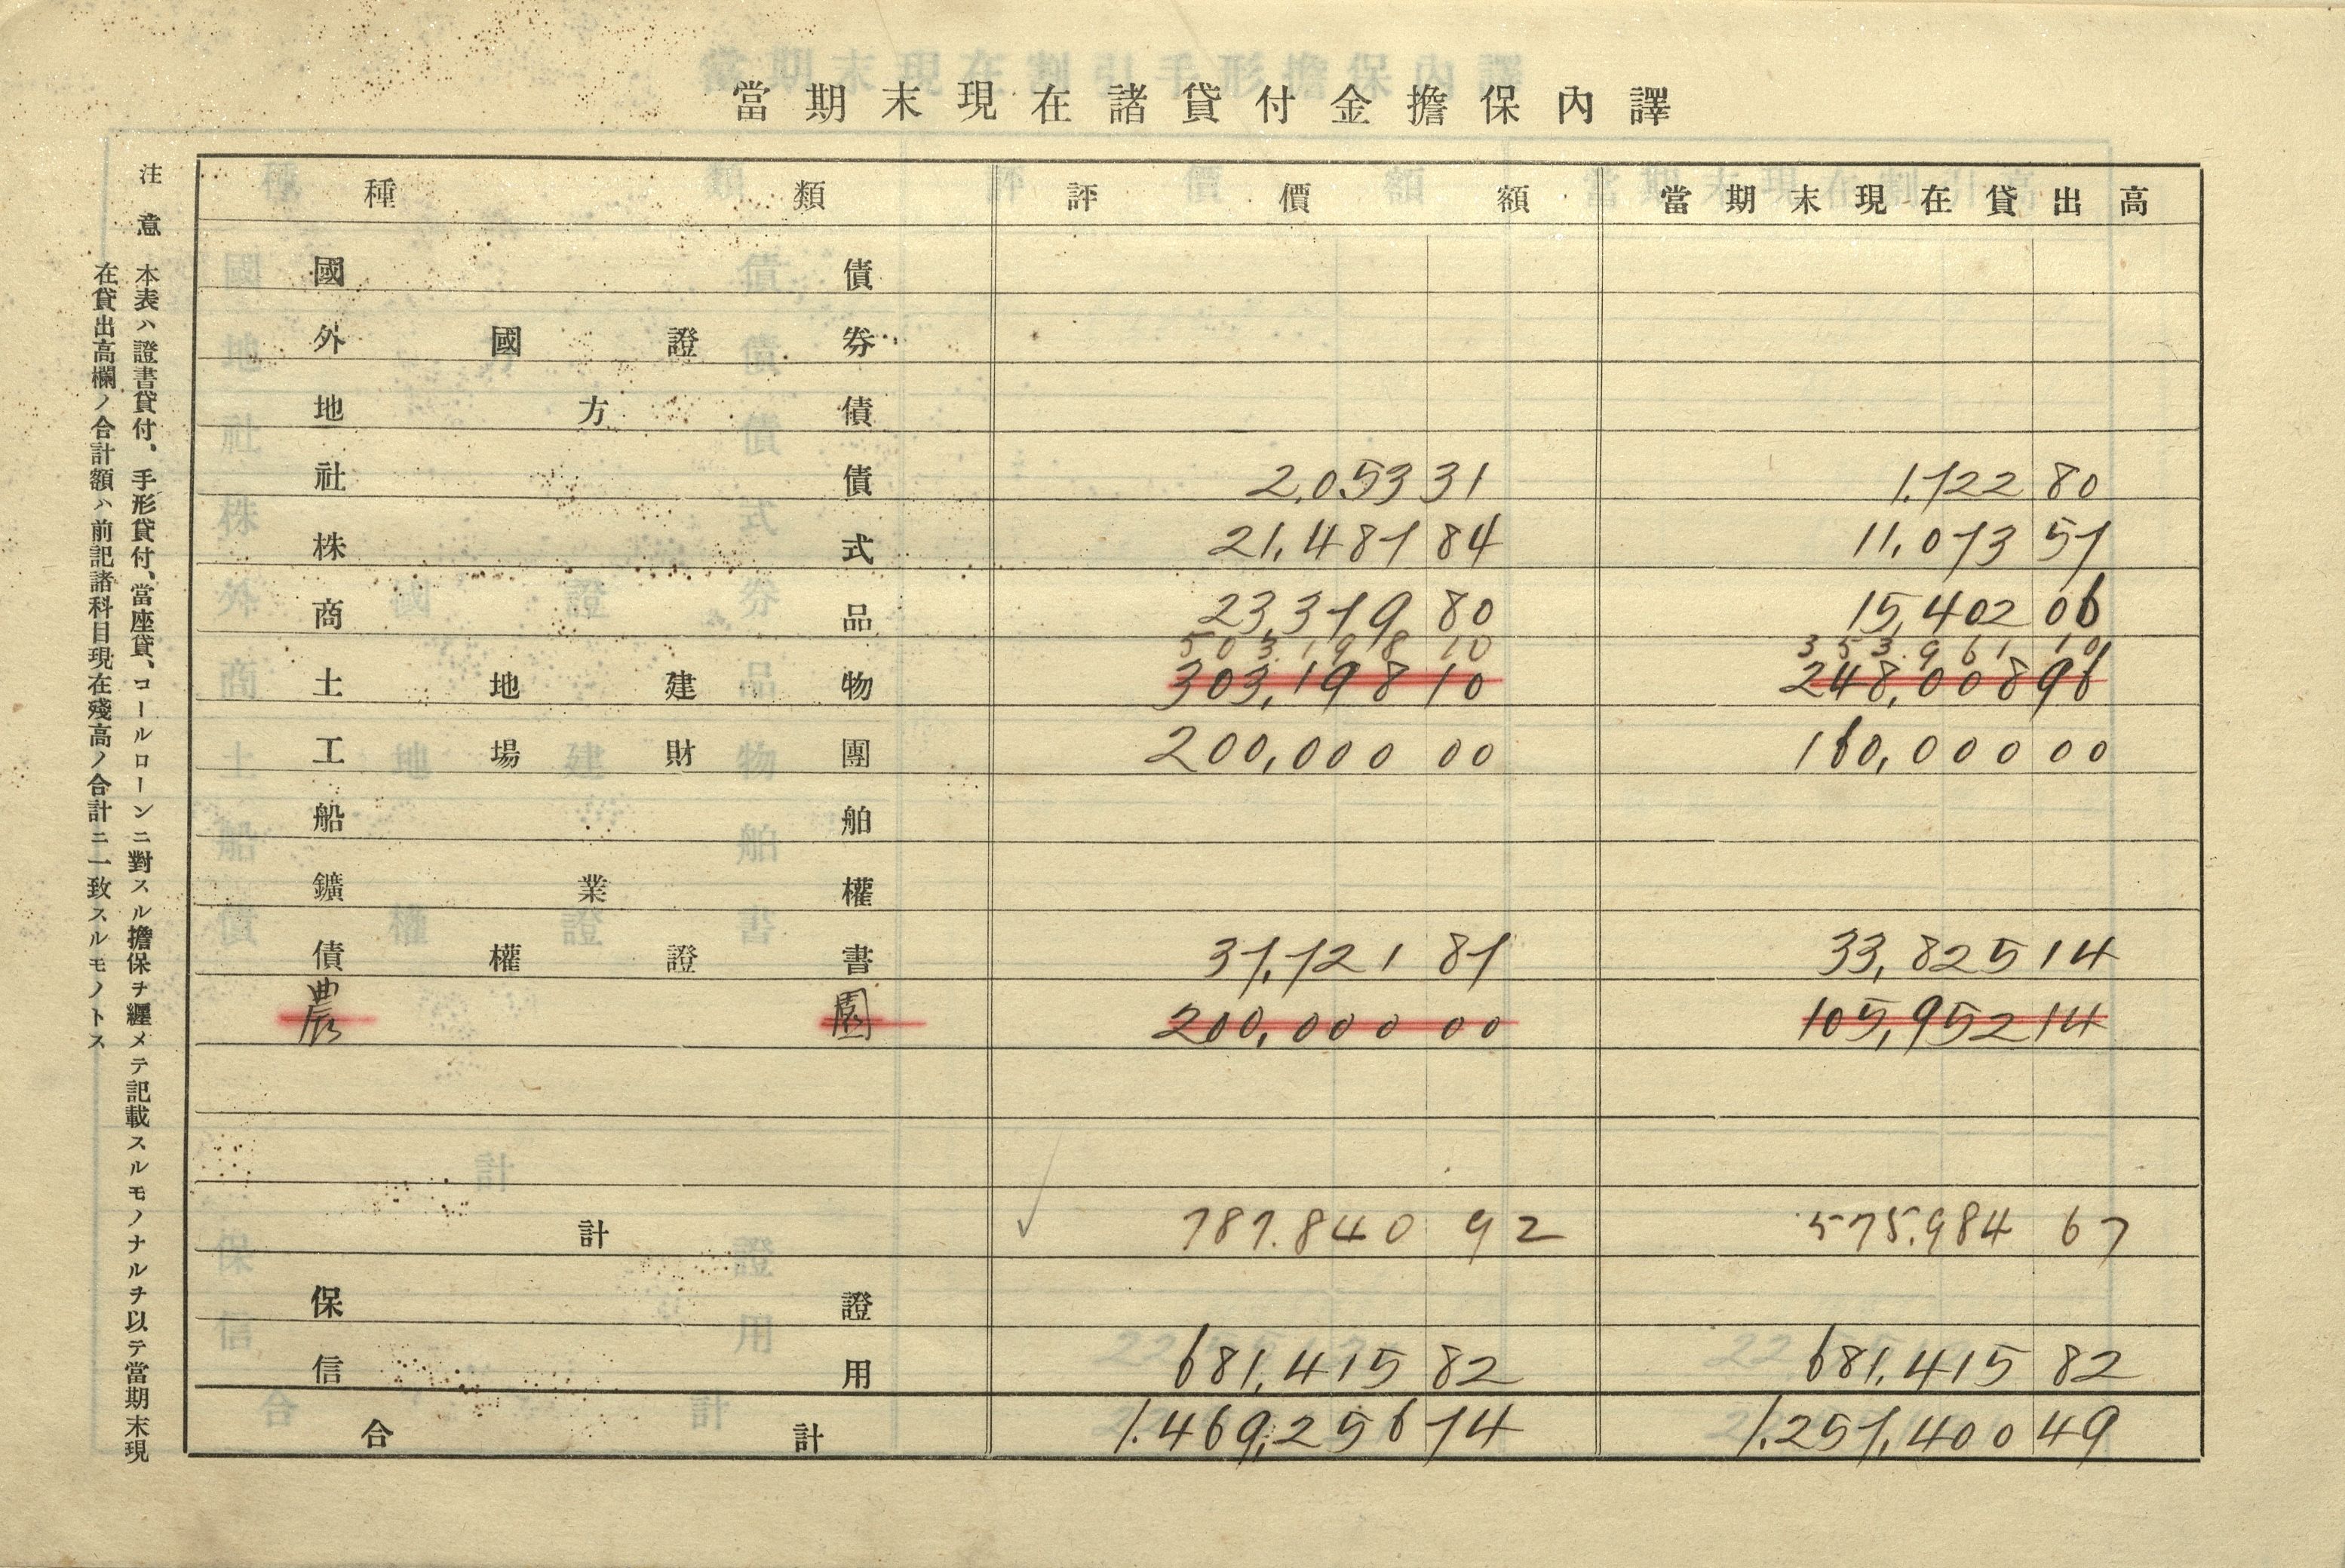 當期末現在諸貸付金擔保內譯
種類 評價額 當期末現在貸出高
國債
外國證券
地方債
社債 2,053 31 1,722 80
株式 21,487 84 11,073 57
商品 23,379 80 15,402 06
503.198 10 353.961 10
土地建物 303,198 10 248,008 96
工場財團 200,000 00 160,000 00
船舶
鑛業權
債權證書 37,721 87 33,825 14
農園 200,000 00 105,952 14
計 787.840 92 575.984 67
保證
信用 681,415 82 681,415 82
合計 1.469,256 74 1.257,400 49
注意 本表ハ證書貸付、手形貸付、當座貸、コールローンニ對スル擔保ヲ纒メテ記載スルモノナルヲ以テ當期末現
在貸出高欄ノ合計額ハ前記諸科目現在殘高ノ合計ニ一致スルモノトス